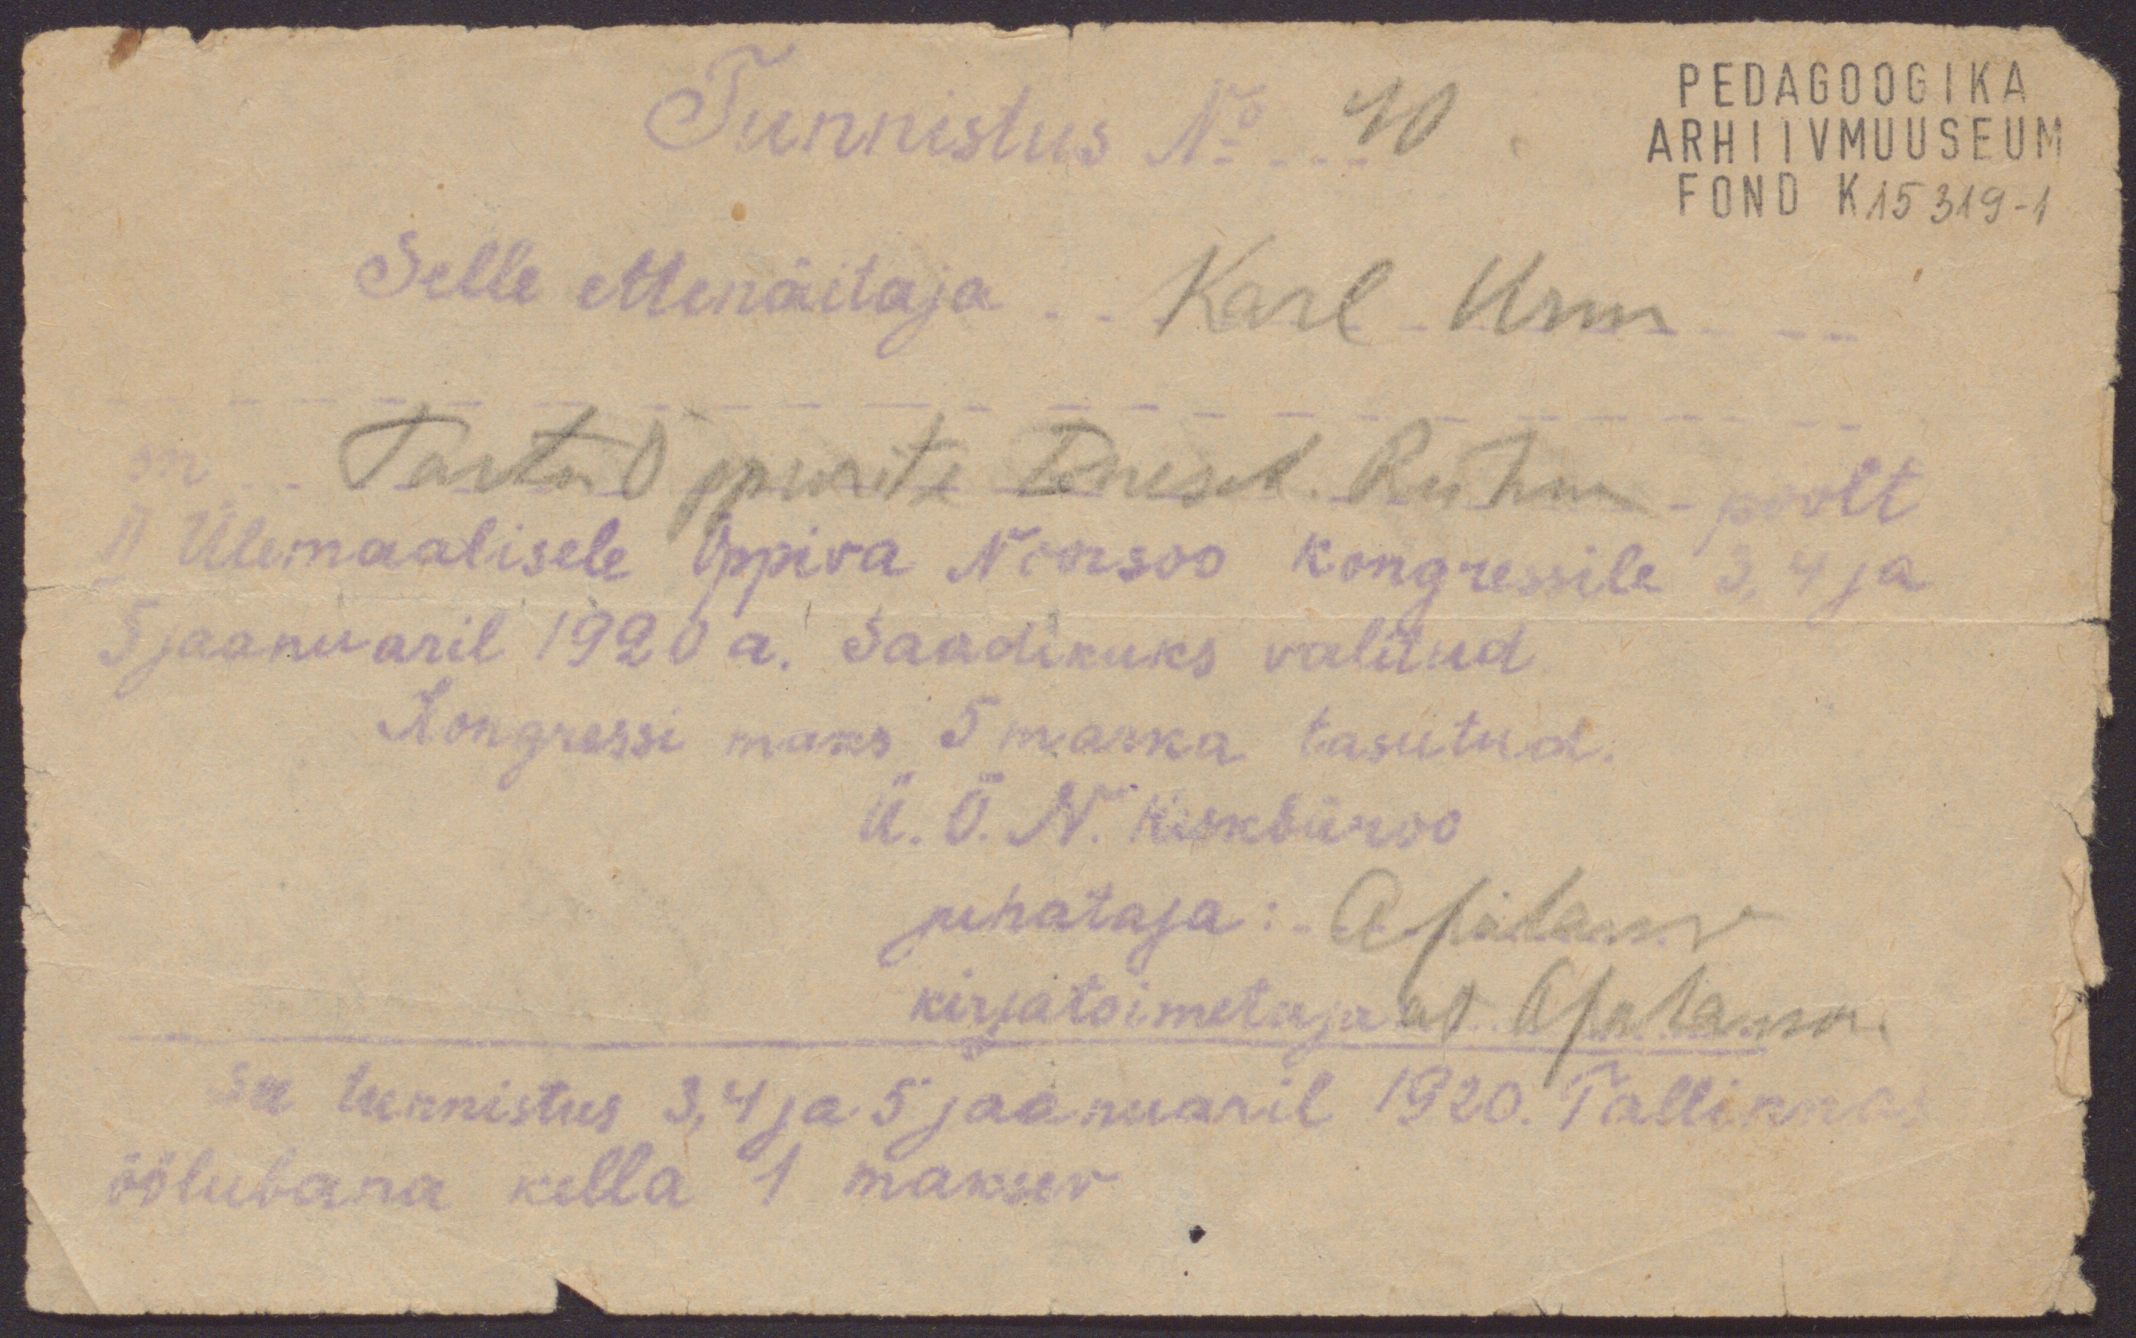 Tunnistus No 10
PEDAGOOGIKA
ARHIIVMUUSEUM
FOND K 15319-1
Selle ettenäitaja Karl Urm
on Tartu Õppurite Ruhma poolt
II Ülemaalisele Õppiva Noorsoo Kongressile 3, 4 ja
5 jaanuaril 1920 a. Saadikuks valitud
Kongressi maks 5 marka tasutud.
Ü. Õ. N. Keskbüroo
juhataja:
kirjatoimetaja
See tunnistus 3, 4 ja 5 jaanuaril 1920. Tallinnas
öölubana kella 1 maksev